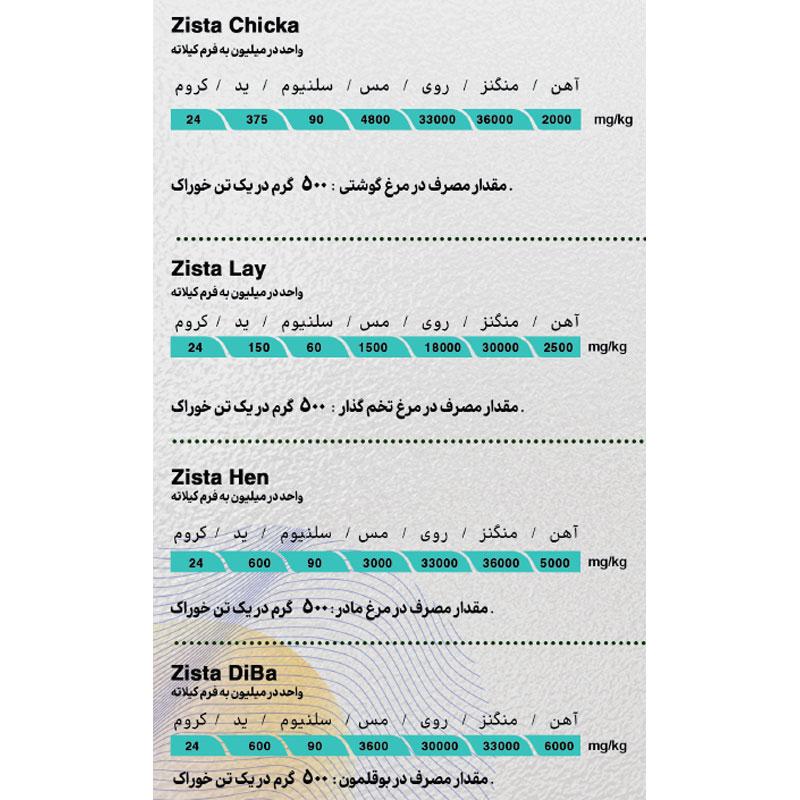 Zista Chicka
واحد در میلیون به فرم کیلاته
آهن / منگنز / روی / مس / سلنیوم / ید / کروم
24 375 90 4800 33000 36000 2000 mg/kg
مقدار مصرف در مرغ گوشتی : ۵۰۰ گرم در یک تن خوراک .
Zista Lay
واحد در میلیون به فرم کیلاته
آهن / منگنز / روی / مس / سلنیوم / ید / کروم
24 150 60 1500 18000 30000 2500 mg/kg
مقدار مصرف در مرغ تخم گذار : ۵۰۰ گرم در یک تن خوراک .
Zista Hen
واحد در میلیون به فرم کیلاته
آهن / منگنز / روی / مس / سلنیوم / ید / کروم
24 600 90 3000 33000 36000 5000 mg/kg
مقدار مصرف در مرغ مادر: ۵۰۰ گرم در یک تن خوراک .
Zista DiBa
واحد در میلیون به فرم کیلاته
آهن / منگنز / روی / مس / سلنیوم / ید / کروم
24 600 90 3600 30000 33000 6000 mg/kg
مقدار مصرف در بوقلمون: ۵۰۰ گرم در یک تن خوراک .